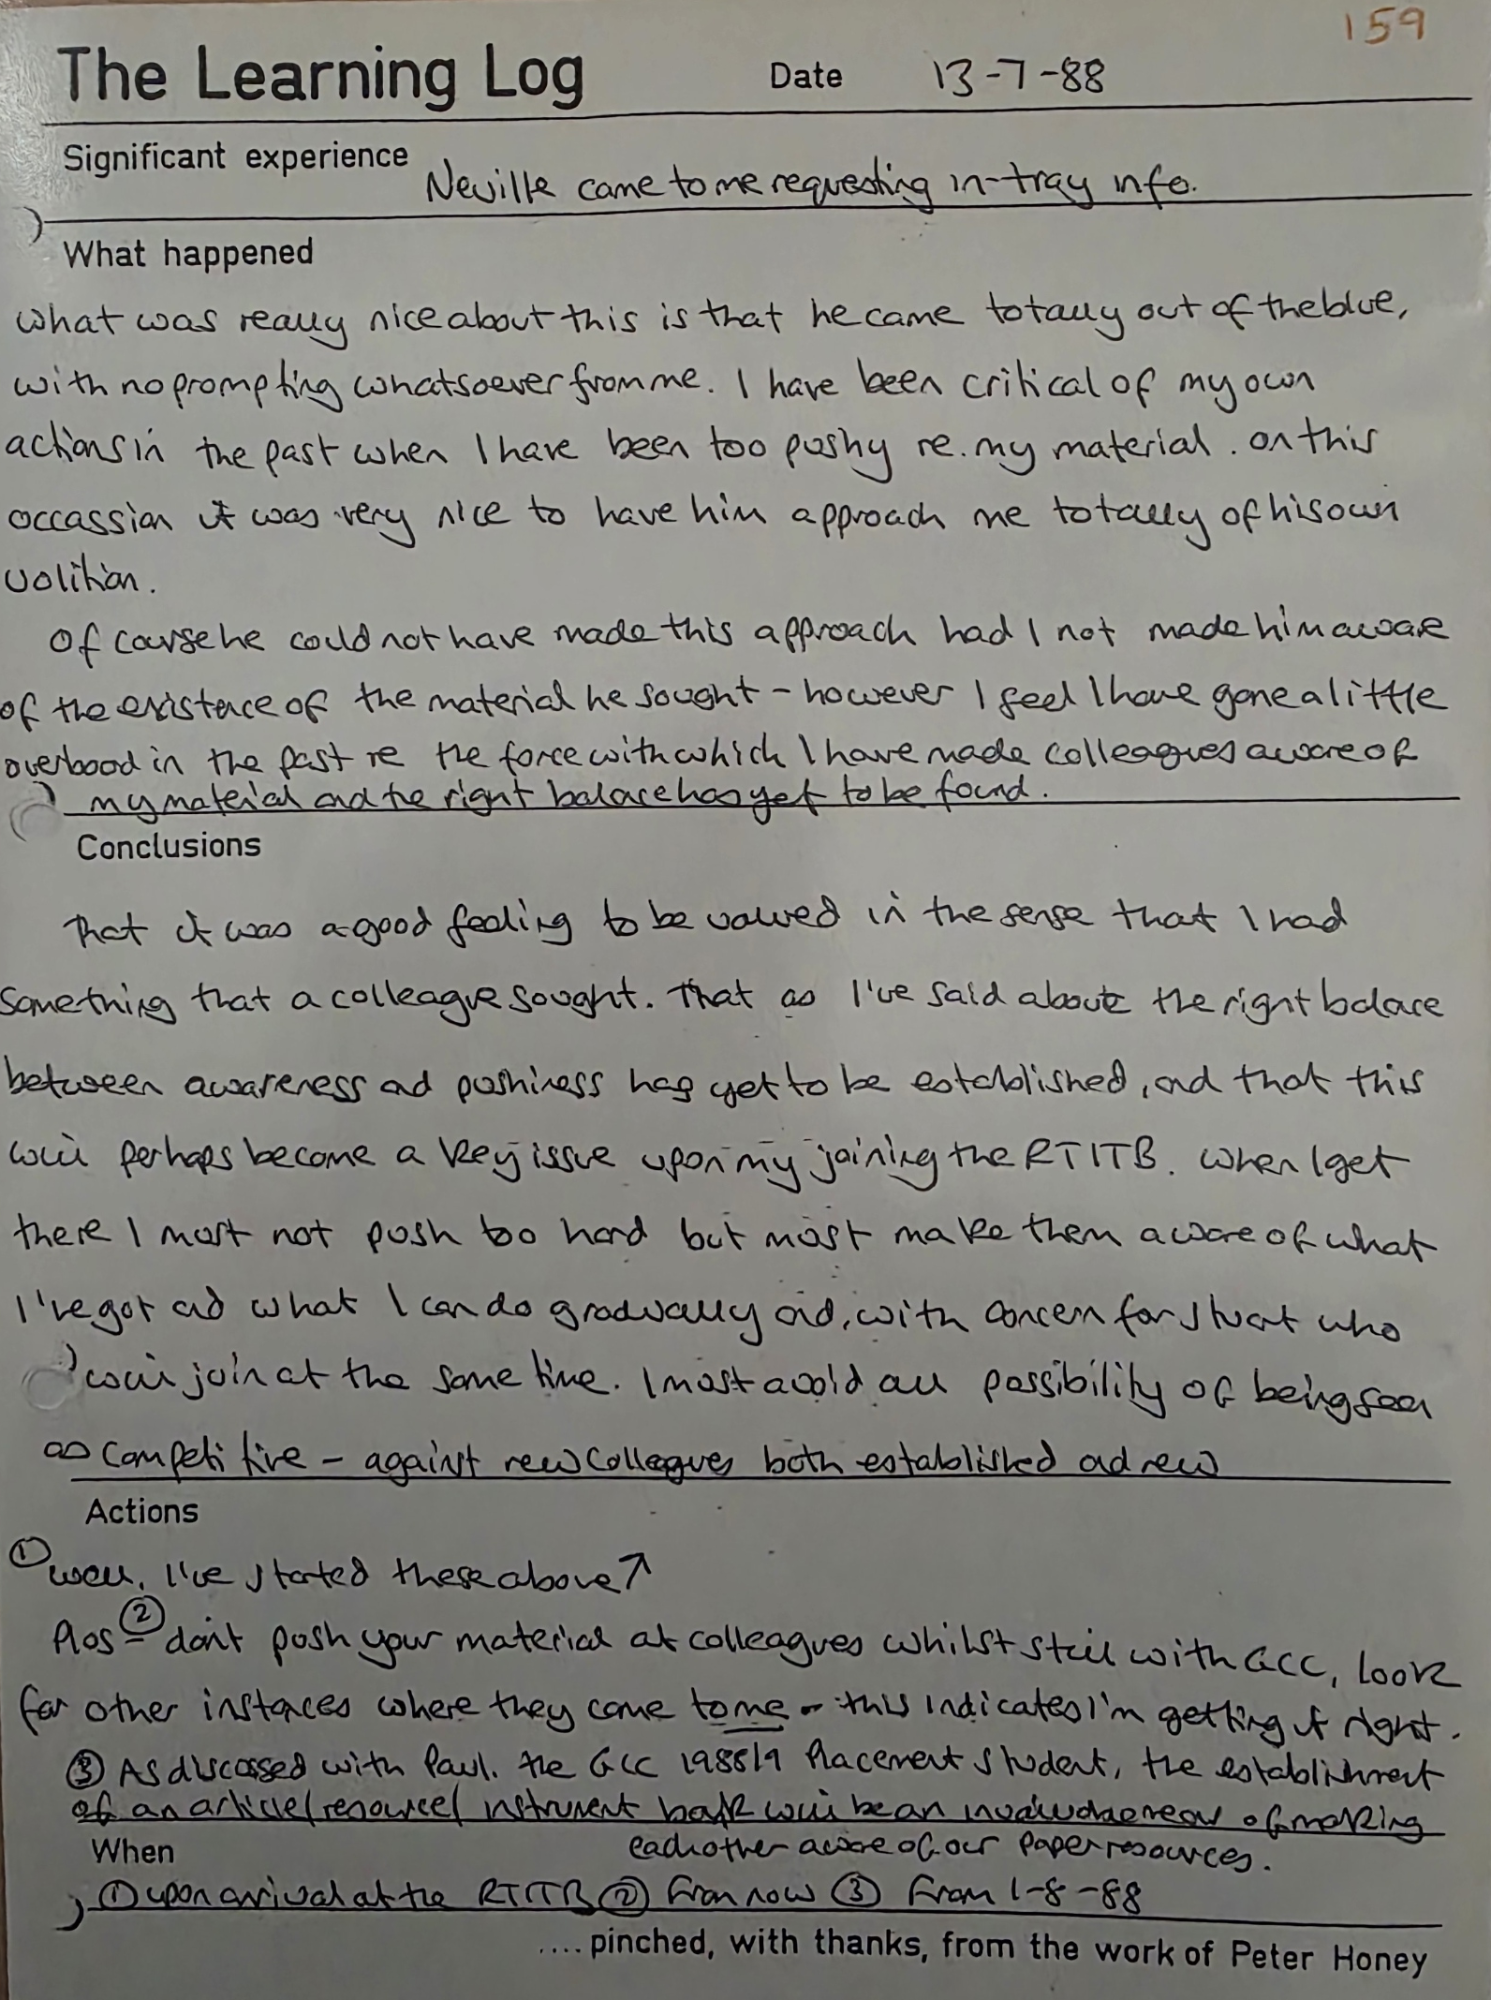 159
The Learning Log Date 13-7-88
Significant experience Neville came to me requesting in-tray info.
What happened
What was really nice about this is that he came totally out of the blue,
with no prompting whatsoever from me. I have been critical of my own
actions in the past when I have been too pushy re. my material. On this
occassion it was very nice to have him approach me totally of his own
volition.
Of course he could not have made this approach had I not made him aware
of the existence of the material he sought - however I feel I have gone a little
overboad in the past re the force with which I have made colleagues aware of
my material and the right balance has yet to be found.
Conclusions
That it was a good feeling to be valued in the sense that I had
something that a colleague sought. That as I've said above the right balance
between awareness and pushiness has yet to be established, and that this
will perhaps become a key issue upon my joining the RTITB. When I get
there I must not push too hard but must make them aware of what
I've got and what I can do gradually and, with concern for Stuart who
will join at the same time. I must avoid all possibility of being seen
as competitive - against new colleagues both established and new
Actions
① Well, I've started these above ↗
Plus ② - don't push your material at colleagues whilst still with GCC, look
for other instances where they come to me - this indicates I'm getting it right.
③ As discussed with Paul, the GCC 1988/9 Placement Student, the establishment
of an article/resource/instrument bank will be an invaluable means of making
each other aware of our paper resources.
When
① upon arrival at the RTITB ② From now ③ From 1-8-88
.... pinched, with thanks, from the work of Peter Honey